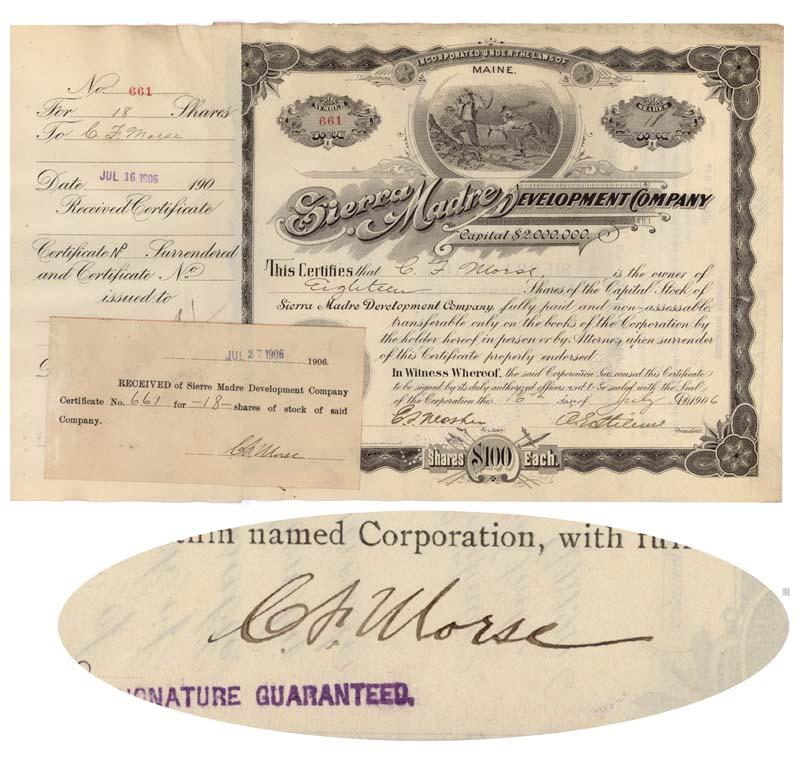 No. 661
For 18 Shares
To C. F. Morse
Date JUL 16 1906 190
Received Certificate
Certificate No Surrendered
and Certificate No.
issued to
INCORPORATED UNDER THE LAWS OF
MAINE.
NUMBER
661
SHARES
18
Sierra Madre DEVELOPMENT COMPANY
Capital $2,000,000.
This Certifies that C. F. Morse is the owner of
Eighteen Shares of the Capital Stock of
Sierra Madre Development Company, fully paid and non-assessable,
transferable only on the books of the Corporation by
the holder hereof in person or by Attorney upon surrender
of this Certificate properly endorsed.
In Witness Whereof, the said Corporation has caused this Certificate
to be signed by its duly authorized officers and to be sealed with the Seal
of the Corporation this 16th day of July A.D. 1906
C. F. Mosher A. E. Stilwell
Secretary. President.
Shares $100 Each.
JUL 27 1906 1906.
RECEIVED of Sierre Madre Development Company
Certificate No. 661 for -18- shares of stock of said
Company.
C. F. Morse
named Corporation, with
C. F. Morse
GUARANTEED.